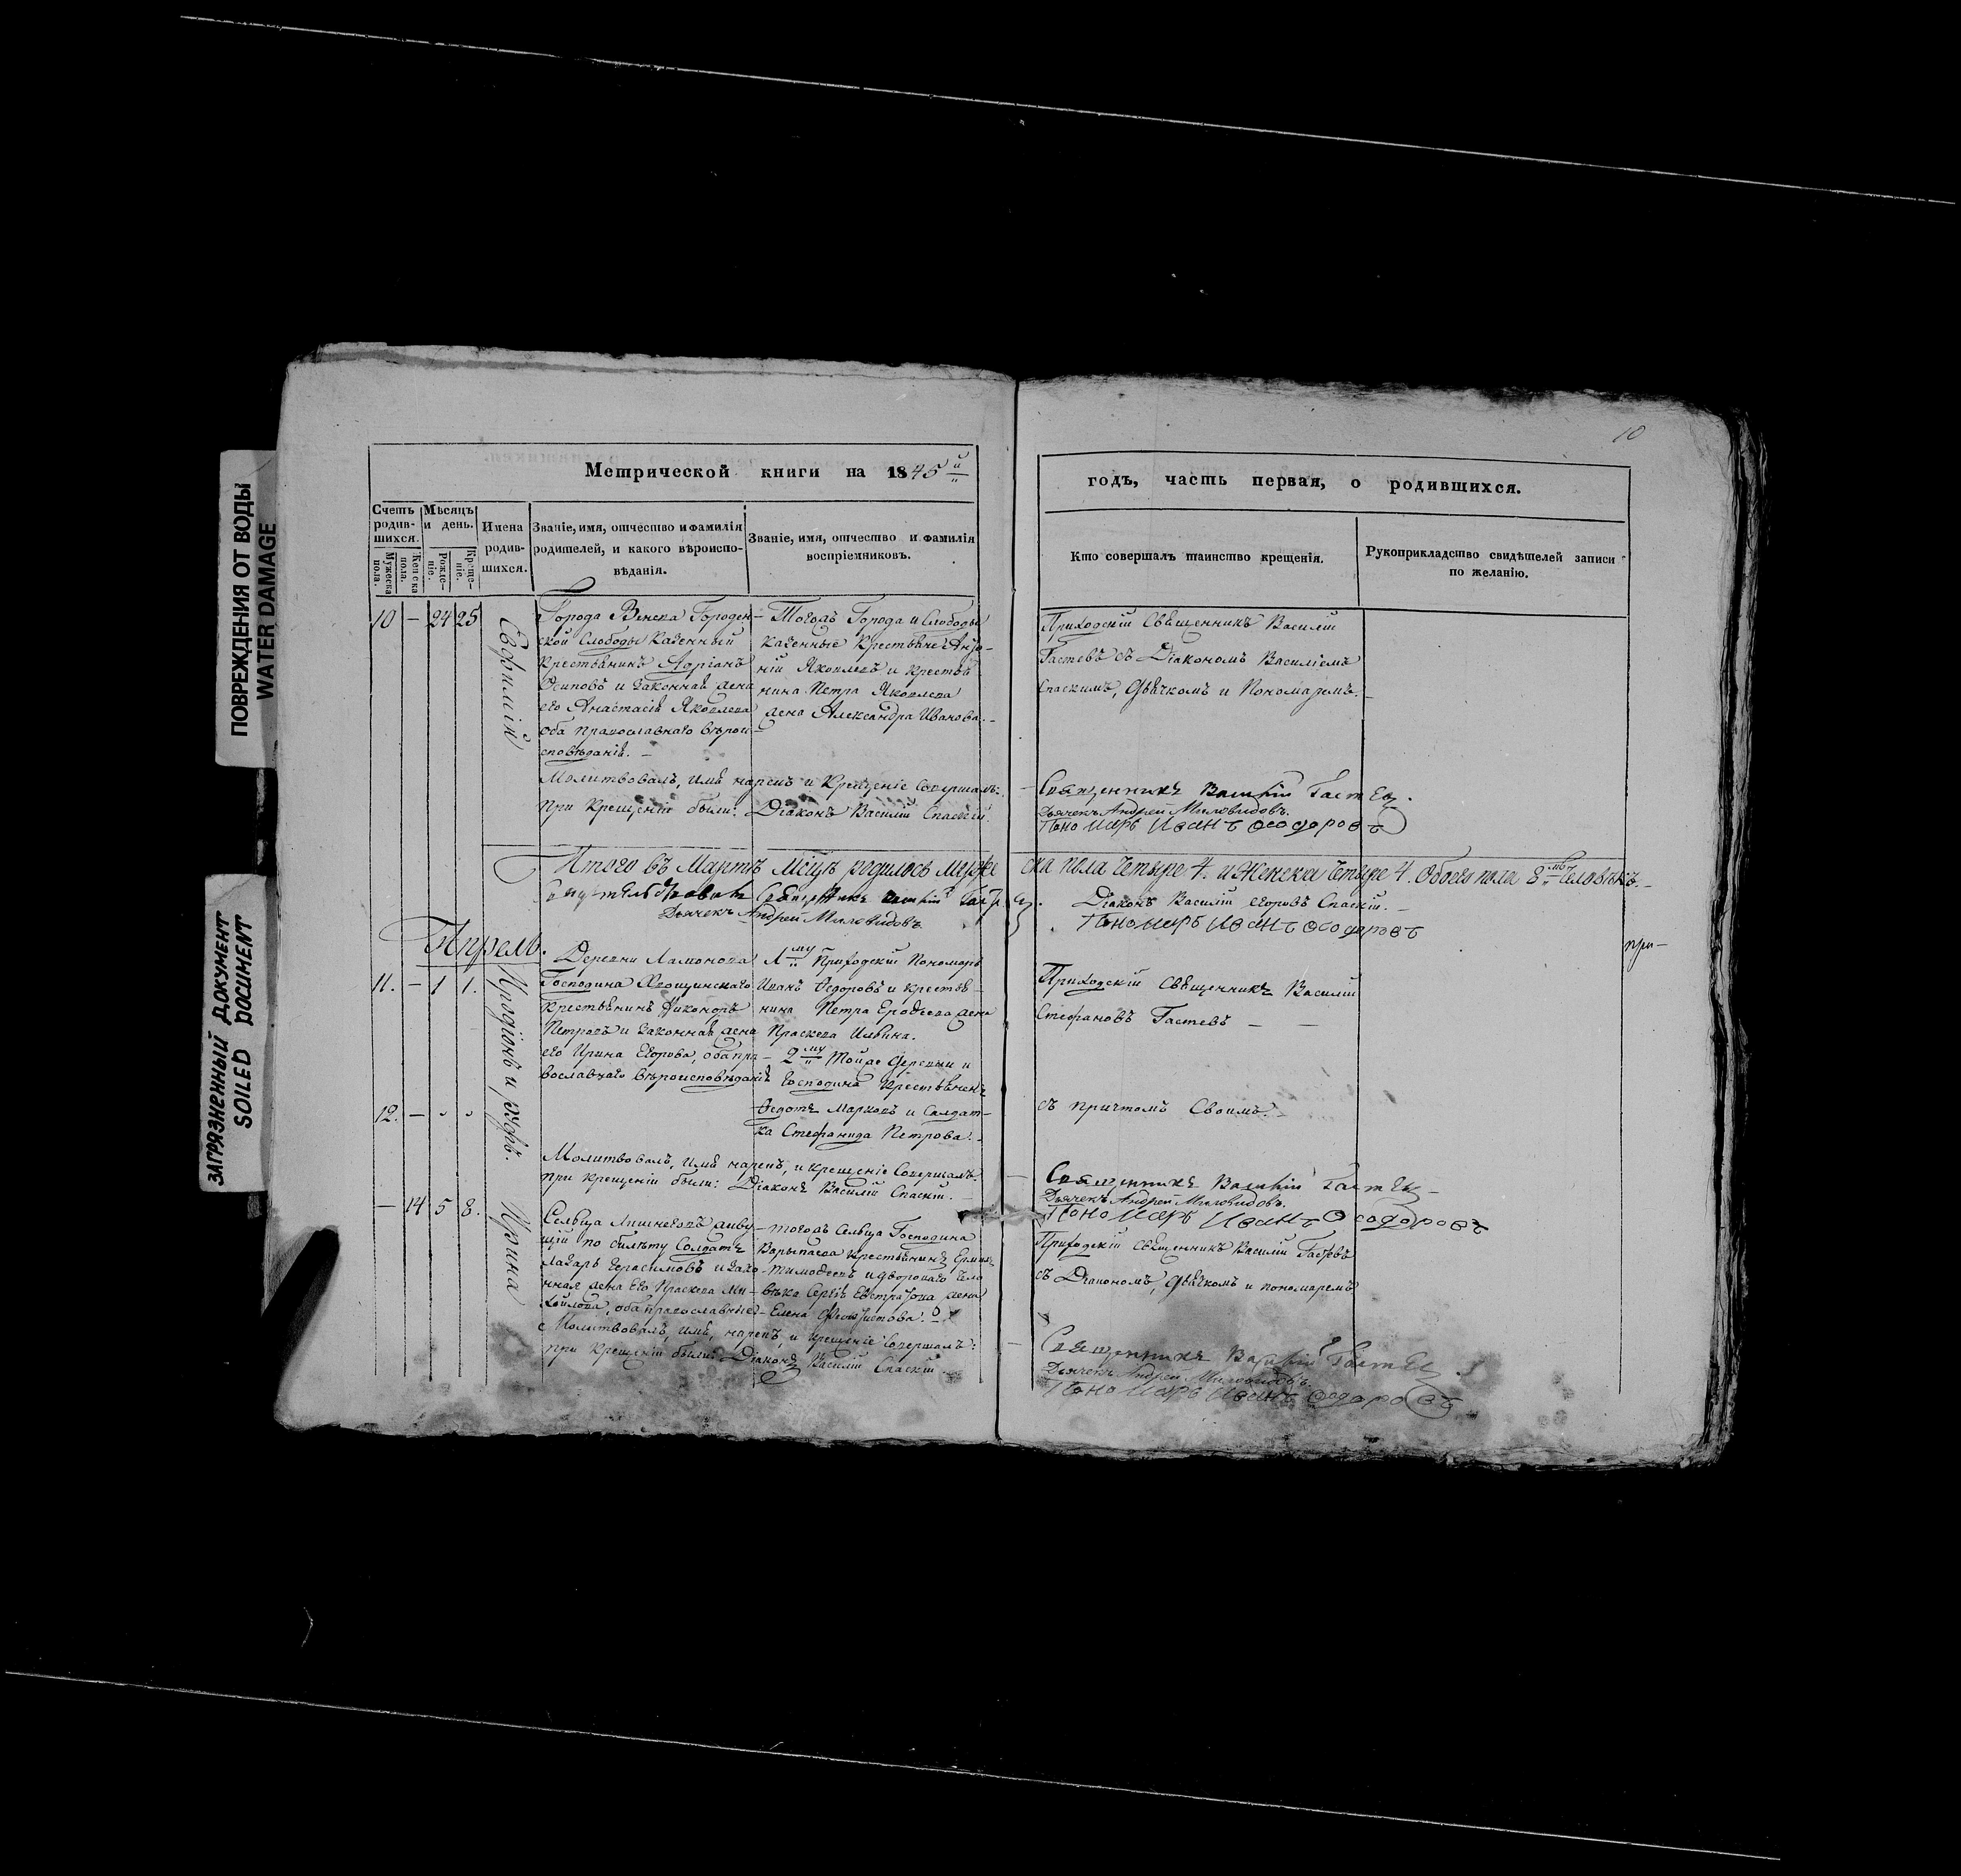 ПОВРЕЖДЕНИЯ ОТ ВОДЫ
WATER DAMAGE
ЗАГРЯЗНЕННЫЙ ДОКУМЕНТ
SOILED DOCUMENT
10
Метрической книги на 1845й
годъ, часть первая, о родившихся.
Счетъ родившихся.
Мужеска пола.
Женска пола.
Мѣсяцъ и день.
Рожденіе.
Крещеніе.
Имена родившихся.
Званіе, имя, отчество и фамилія родителей, и какого вѣроисповѣданія.
Званіе, имя, отчество и фамилія воспріемниковъ.
Кто совершалъ таинство крещенія.
Рукоприкладство свидѣтелей записи по желанію.
10 – 24 25
Евфимій
Города Венева Городен-
ской Слободы Казенный
Крестьянинъ Адріанъ
Осиповъ и Законная жена
его Анастасія Яковлева
оба православнаго вѣрои-
сповѣданія. –
Тогожъ Города и Слободы
Казенные Крестьяне
Яковлевъ и Крестья-
нина Петра Яковлева
жена Александра Иванова. –
Приходскій Священникъ Василій
Гастевъ съ Діакономъ Василіемъ
Спаскимъ, Дьячкомъ и Пономаремъ. –
Молитвовалъ, имя нарекъ и Крещеніе Совершалъ:
При Крещеніи были: Діаконъ Василій Спаскій.
Священникъ Василій Гастевъ.
Дьячекъ Андрей Миловидовъ.
Пономарь Иванъ Ѳеодоровъ
Итого въ Мартѣ Мсцѣ родилось муже
ска пола Четыре 4. и Женска Четыре 4. Обоего пола 8мь Человѣкъ. –
Священникъ Василій
Дьячекъ Андрей Миловидовъ
Діаконъ Василій Егоровъ Спаскій. –
Пономарь Иванъ Ѳеодоровъ
при–
Апрель.
11. – 1 1.
12. – " "
Деревни Ламонова
Господина
Крестьянинъ Никоноръ
Петровъ и Законная жена
его Ирина Егорова, оба пра-
вославнаго вѣроисповѣданія
1му Приходскій Пономарь
Иванъ Ѳедоровъ и крестья-
нина Петра жена
Праскева Ильина.
– 2му Тойже деревни и
Господина Крестьянинъ
Ѳедотъ Марковъ и Солдат-
ка Стефанида Петрова. –
Приходскій Священникъ Василій
Стефановъ Гастевъ – –
съ причтомъ Своимъ. –
Молитвовалъ, имя нарекъ, и крещеніе Совершалъ.
При Крещеніи были: Діаконъ Василій Спаскій. –
Священникъ Василій Гастевъ –
Дьячекъ Андрей Миловидовъ.
Пономарь Иванъ Ѳеодоровъ
– 14 5 8.
Ирина
Сельца живу-
щій по билету Солдатъ
Лазарь Герасимовъ и зако-
нная жена его Праскева Ми-
хайлова, оба православные
– тогожъ Сельца Господина
Крестьянинъ
Тимофеевъ и двороваго Чело
вѣка Сергѣя Евстратова жена
– Елена
Приходскій Священникъ Василій Гастевъ
съ Діакономъ, Дьячкомъ и пономаремъ
Молитвовалъ, имя, нарекъ, и крещеніе Совершалъ:
при Крещеніи были: Діаконъ Василій Спаскій –
Священникъ Василій Гастевъ
Дьячекъ Андрей Миловидовъ.
Пономарь Иванъ Ѳеодоровъ